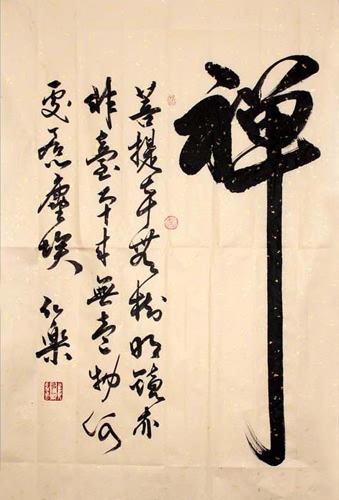 禅
菩提本無樹明鏡亦
非臺本来無壹物何
處惹塵埃 仁樂